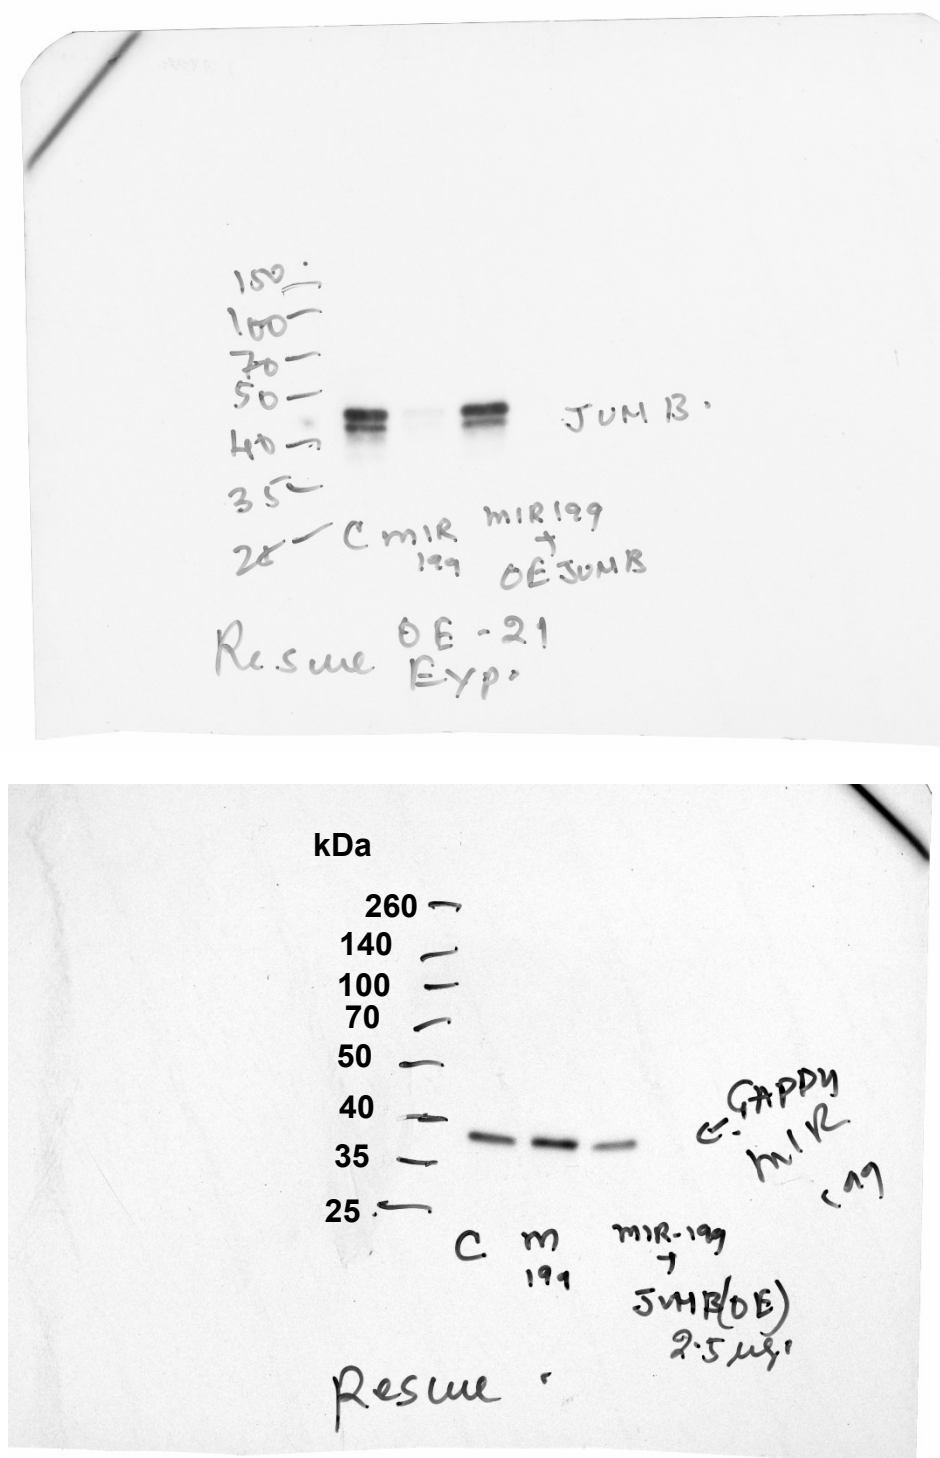 150
100
70
50
JUMB.
40
35
25
C mIR 199
mIR 199 + OE JUMB
OE-21
Rescue Exp.
kDa
260
140
100
70
50
40
35
25
GAPDH
mIR
C m 199
mIR-199 + JUMB(OE) 2.5 µg.
Rescue